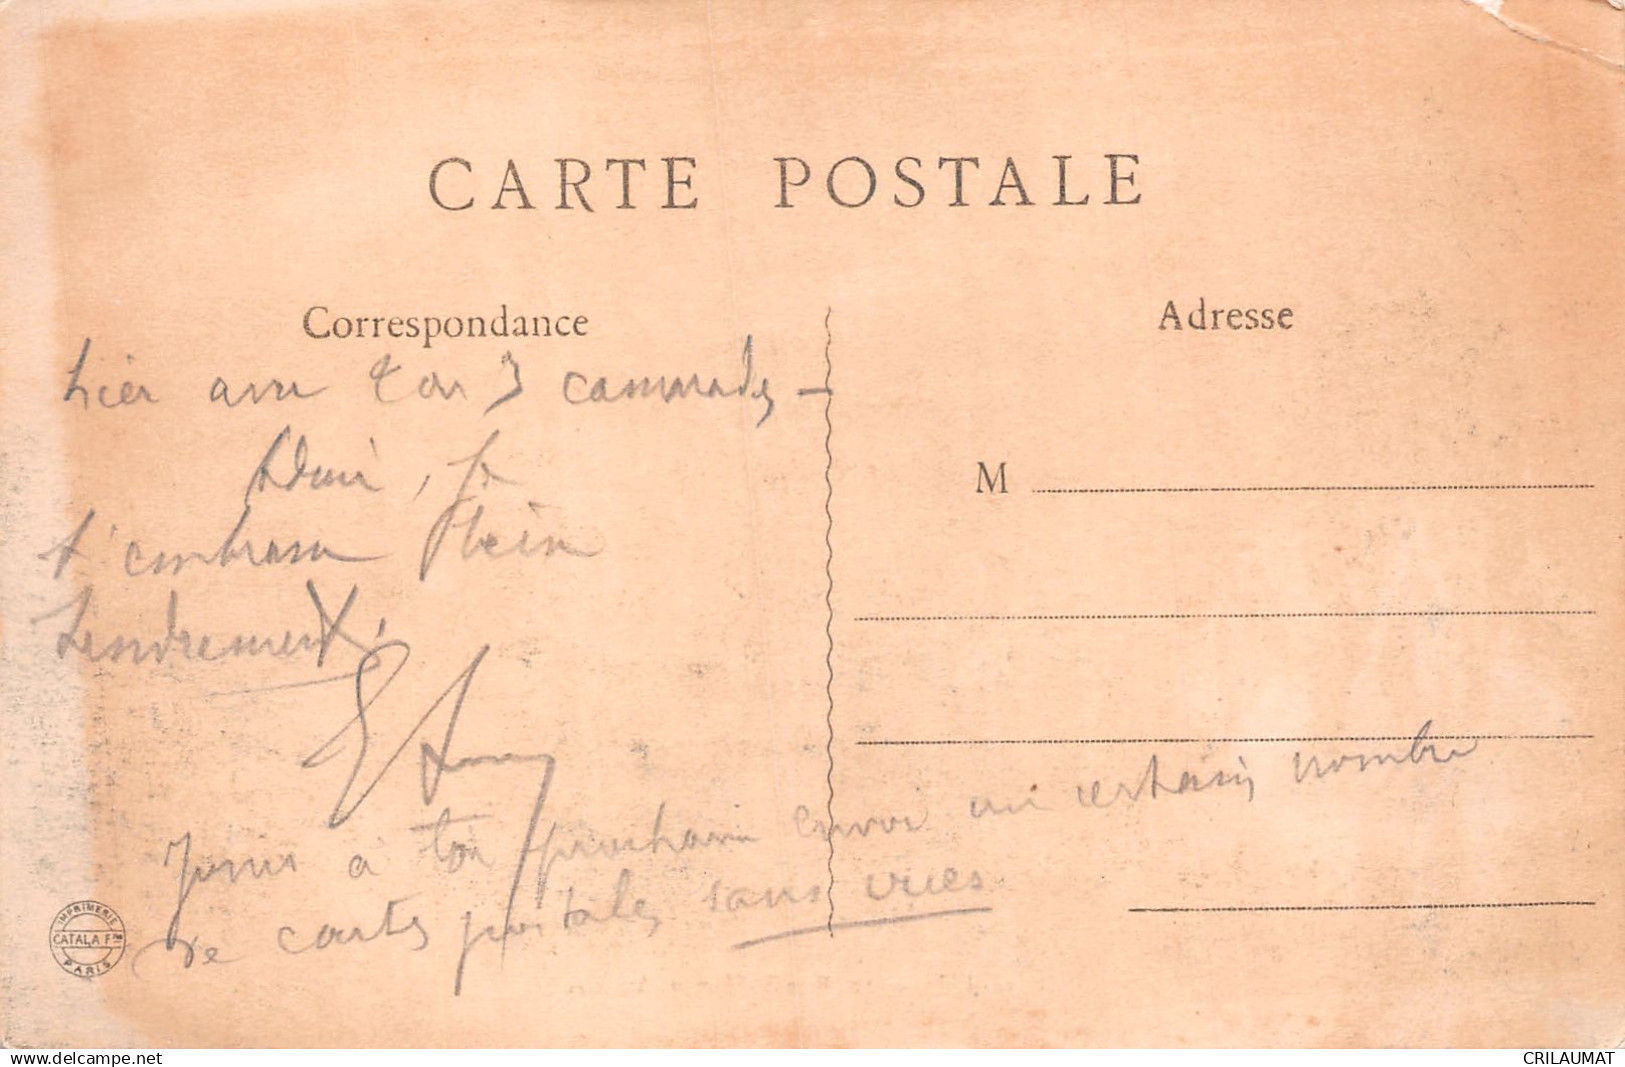 CARTE POSTALE
Correspondance
Adresse
hier avec 2 ou 3 camarades –
Adieu, je
t'embrasse bien
tendrement,
M
Joins à ton prochain envoi un certain nombre
de cartes postales sans vues
IMPRIMERIE
CATALA Fres
PARIS
www.delcampe.net
CRILAUMAT